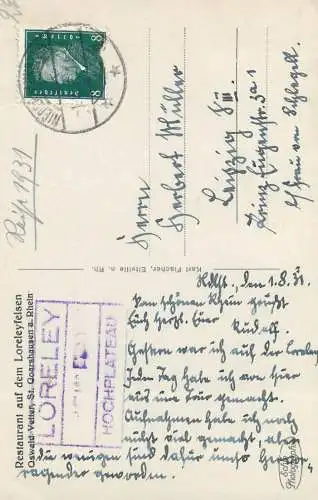 Reise 1931
8 8
Deutsches Reich
Herrn
Herbert Müller
Leipzig S III.
Prinz Eugenstr. 3a I
b/ Frau von Schlegell.
Karl Fischer, Eltville a. Rh.
Restaurant auf dem Loreleyfelsen
Oswald Vetter, St. Goarshausen a. Rhein
LORELEY
HOCHPLATEAU
d. 1.8.31.
Vom schönen Rhein grüßt
Euch herzl. Euer
Rudolf.
Gestern war ich auf der Loreley
Jeden Tag habe ich von hier
aus eine Tour gemacht.
Aufnahmen habe ich noch
nicht viel gemacht, aber
die wenigen sind dafür umso hervor-
ragender geworden.